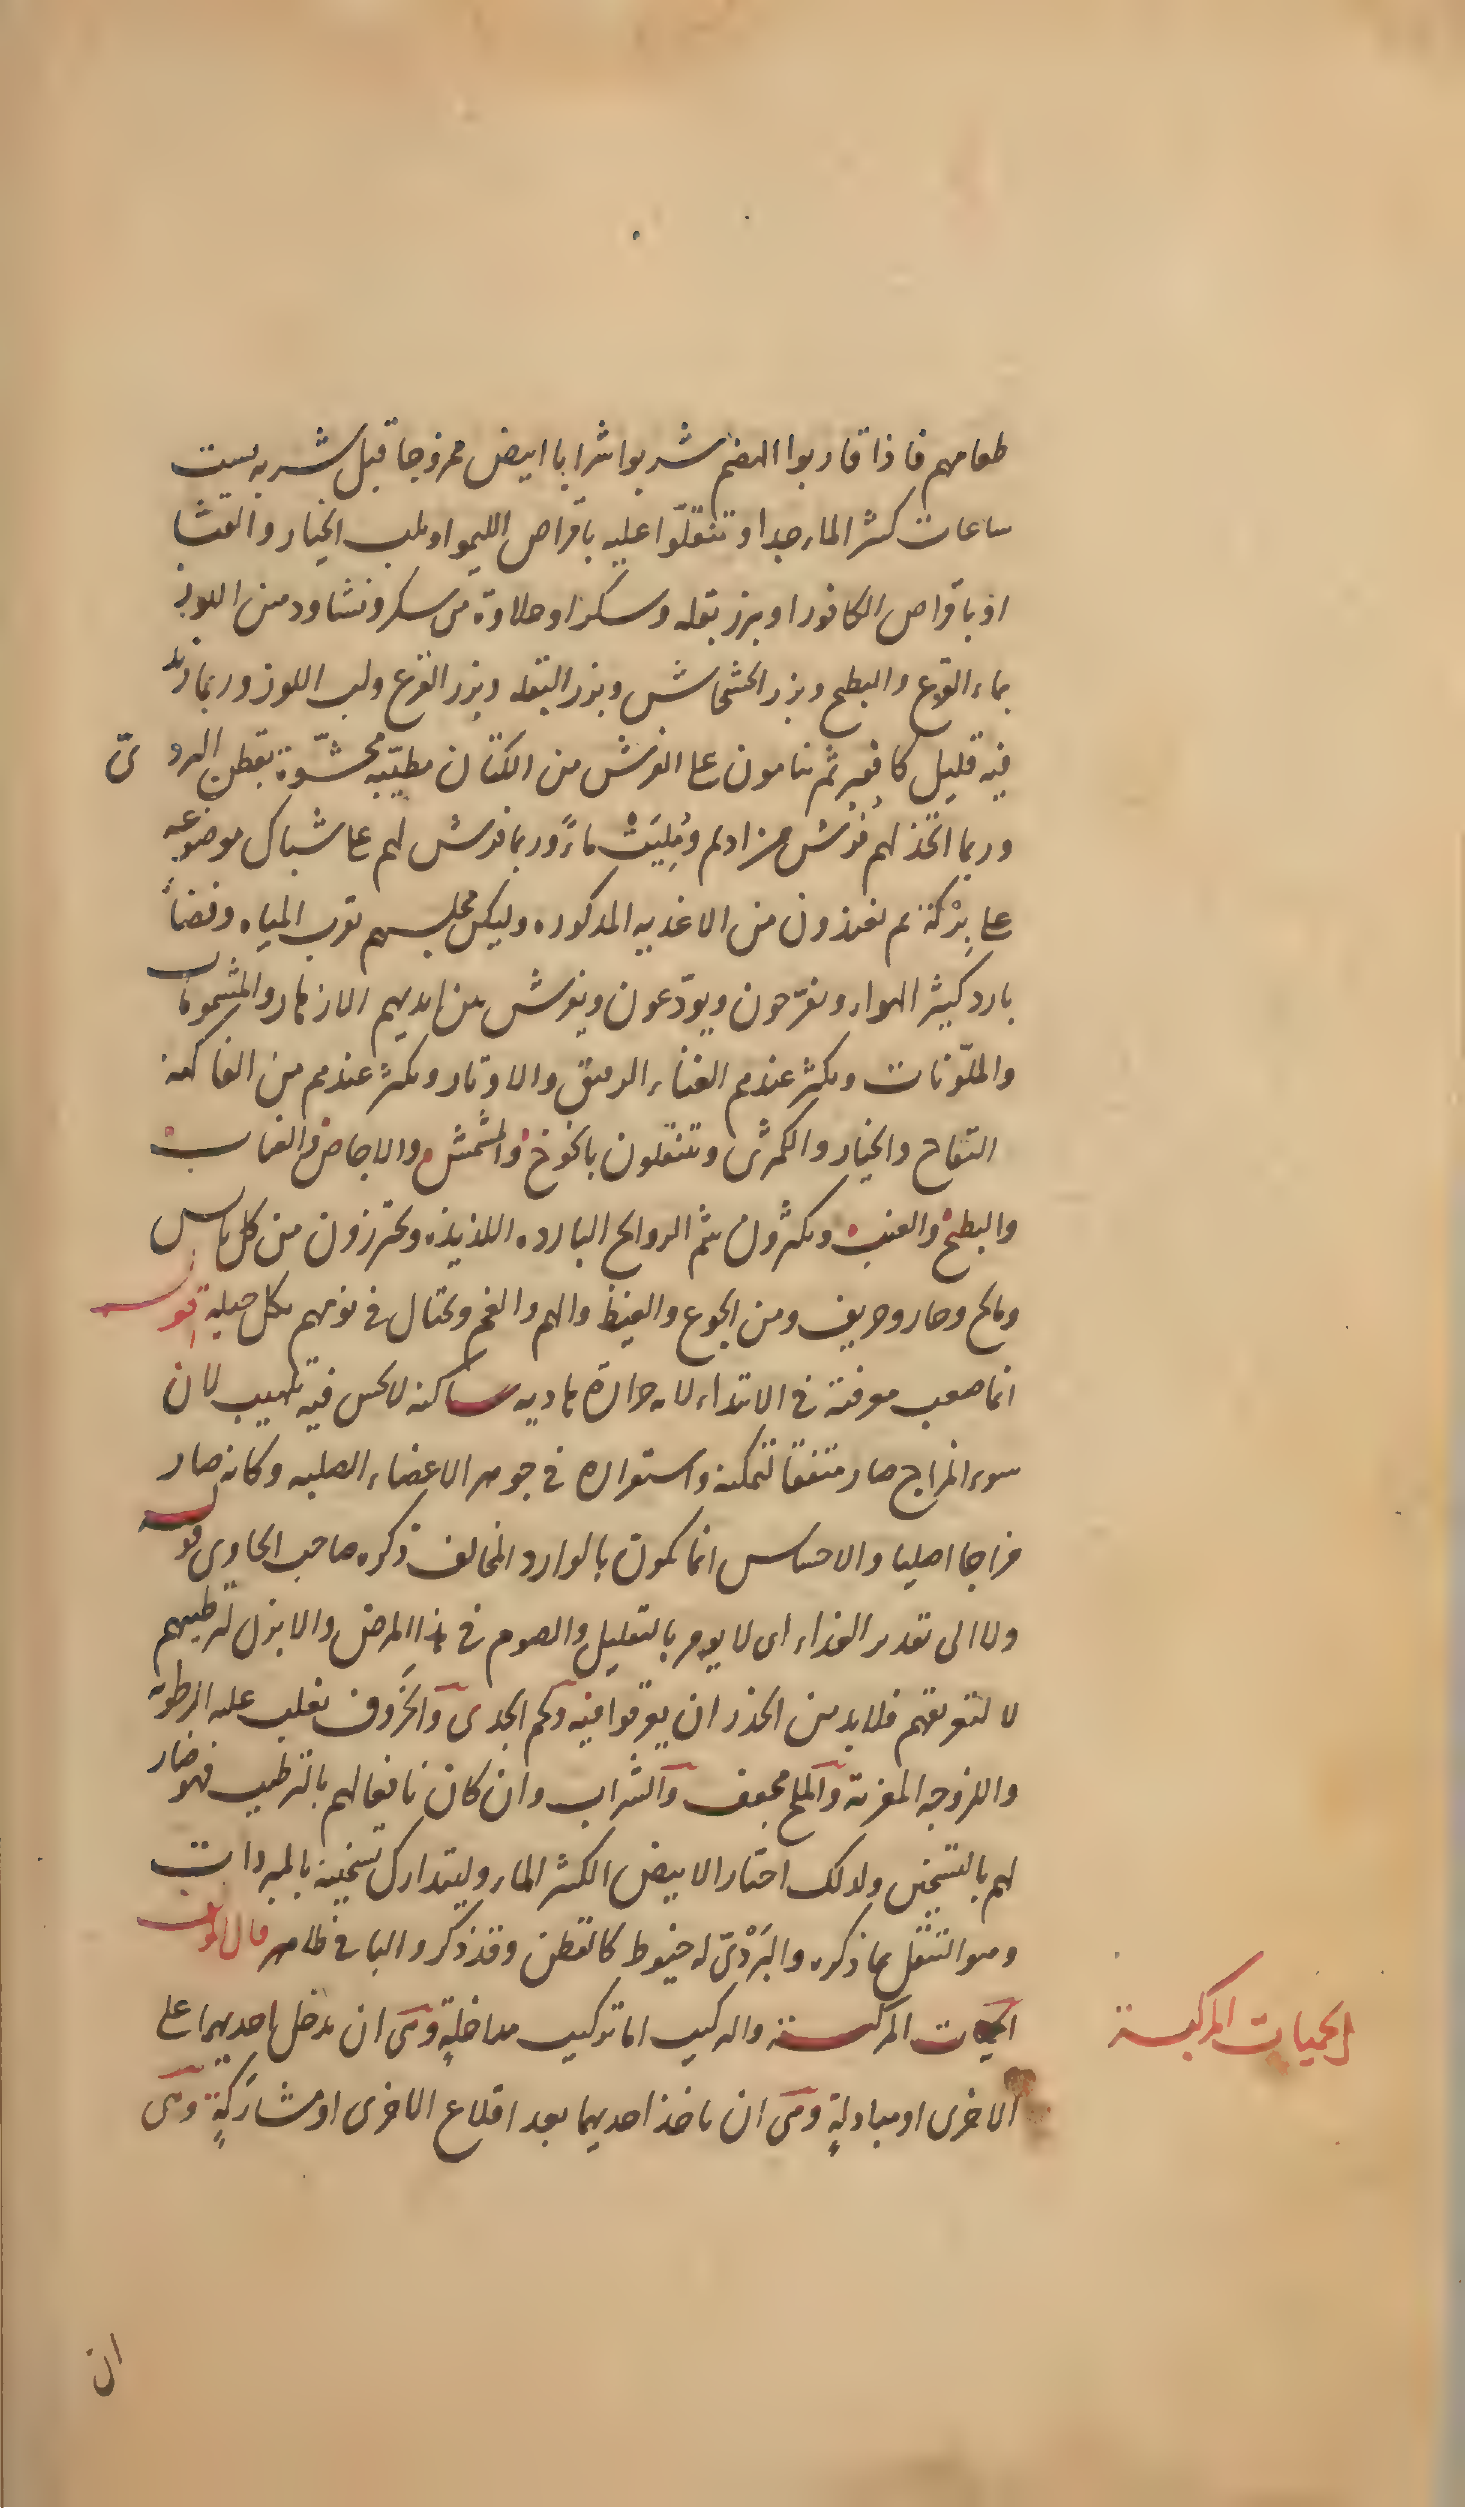 طعامهم فاذا قاربوا الهضم شربوا شرابا ابيض ممزوجا قبل شربه بست
ساعات كثير الماء جدا وتنقلوا عليه باقراص الليمو او بلب الخيار والقثا
او باقراص الكافور او ببزر بقله وسكر او حلاوة من سكر ونشا ودهن اللوز
بماء القرع والبطيخ وبزر الخشخاش وبزر البقله وبزر القرع ولب اللوز وربما زيد
فيه قليل كافور ثم ينامون على الفرش من الكتان مطيّبه محشوّة بقطن البردىّ
وربما اتخذ لهم فُرُش من ادم ومُلِيَتْ ماءً وربما فرش لهم على شباك موضوعه
على بِرْكة ثم يغتذون من الاغذيه المذكوره وليكن مجلسهم بقرب المياه وفضاءً
بارد كثير الهواء ويفرّحون ويودّعون ويفرش بين ايديهم الازهار والمشمومات
والملوّنات ويكثر عندهم الغناء الرقيق والاوتار ويكثر عندهم من الفاكهة
التفاح والخيار والكمثرى ويتنقلون بالخوخ والمشمش والاجاص والعناب
والبطيخ والعنب ويكثرون شم الروايح البارده اللذيذه ويحترزون من كل يابس
ومالح وحار وحريف ومن الجوع والغيظ والهم والغم ويحتال فى نومهم بكل حيله اقول
انما صعب معرفته فى الابتداء لانه حرارة هاديه ساكنه لا يحس فيه بلهيب لان
سوء المزاج صار متفقا لتمكنه واستقراره فى جوهر الاعضاء الصلبه وكانه صار
مزاجا اصليا والاحساس انما يكون بالوارد المخالف ذكره صاحب الحاوى قوله
ولا الى تقدير الغذاء اى لا يومر بالتقليل والصوم فى هذا المرض والابزن لترطيبهم
لا لتعريقهم فلا بد من الحذر ان يعرقوا فيه ولحم الجدى والخروف يغلب عليه الرطوبة
واللزوجه المغريه والملح مجفف والشراب وان كان نافعا لهم بالترطيب فهو ضار
لهم بالتسخين ولذلك اختار الابيض الكثير الماء وليتدارك تسخينه بالمبردات
وهو التنقل بما ذكره والبَرْدىّ له خيوط كالقطن وقد ذكر والباقى ظاهر قال المولف
الحميات المركبة والتركيب اما تركيب مداخلةٍ وهى ان يدخل احديهما على
الاخرى او مبادلةٍ وهى ان ياخذ احديهما بعد اقلاع الاخرى او مشاركةٍ وهى
الحميات المركبة
ان